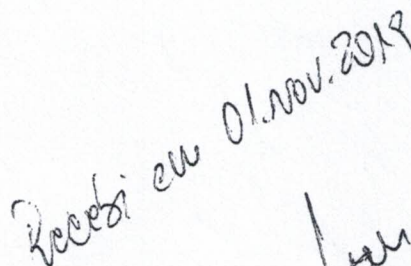 Recebi em 01.NOV.2019